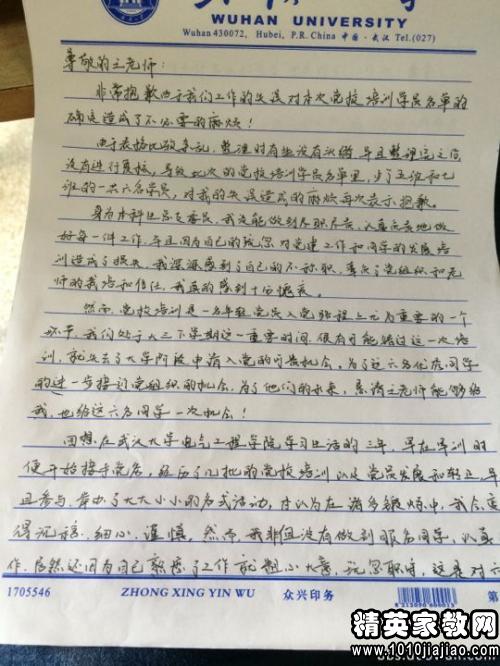 武汉大学
WUHAN UNIVERSITY
Wuhan 430072, Hubei, P.R. China 中国·武汉 Tel.(027)
尊敬的王老师：
非常抱歉由于我们工作的失误对本次党校培训学员名单的
确定造成了不必要的麻烦！
由于表格比较杂乱，整理时有些没有认清，并且整理完之后
没有进行复核，导致此次的党校培训学员名单里，少了五班和七
班的一共六名学员，对我的失误造成的麻烦再次表示抱歉。
身为本科生党支委员，我没能做到尽职尽责，认真负责地做
好每一件工作，并且因为自己的疏忽对党建工作和同学的发展培
训造成了损失，我深深感到了自己的不称职，辜负了党组织和老
师的栽培和信任，我真的感到十分愧疚。
然而，党校培训是一名年轻党员入党路程上尤为重要的一个
环节，我们处于大三下学期这一重要时间，很有可能错过这一次培
训，就失去了大学阶段申请入党的可贵机会，为了这六名优秀同学
的进一步接近党组织的机会，为了他们的未来，恳请王老师能够给
我，也给这六名同学一次机会！
回想在武汉大学电气工程学院学习生活的三年，早在军训时
便开始接手党务，经历了几批的党校培训以及党员发展和转正，并
且参与、举办了大大小小的各式活动，本以为在诸多锻炼中，我会变
得沉稳、细心、谨慎，然而，我非但没有做到服务同学，认真
作，居然还因为自己熟悉了工作就粗心大意，玩忽职守，这是对六
1705546
ZHONG XING YIN WU 众兴印务
第
精英家教网
www.1010jiajiao.com